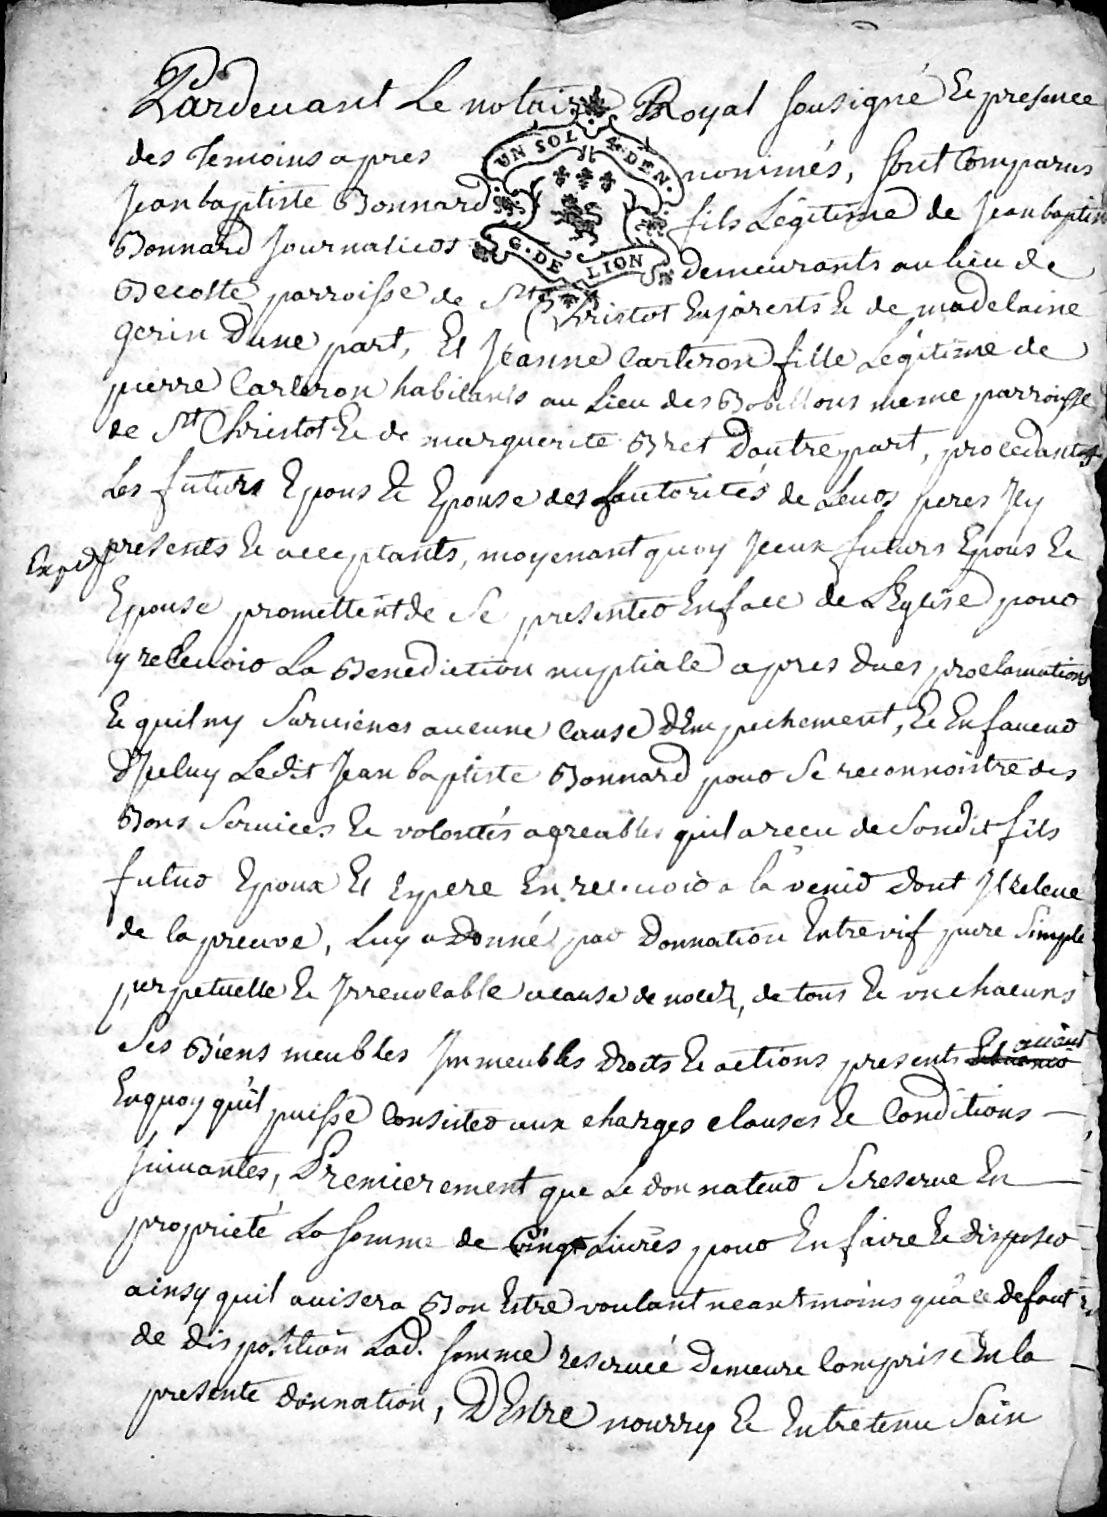 Pardevant Le notaire Royal sousigné & presence
UN SOL 4. DEN.
G. DE LION
des Temoins apres nommés, sont Comparus
Jean baptiste Bonnard fils Légitime de Jean baptiste
Bonnard Journalier demeurants au lieu de
Becoste parroisse de St Christot En jarests & de madelaine
gerin Dune part, Et Jeanne Carteron fille Légitime de
pierre Carteron habitants au Lieu des Bobillons meme parroisse
de St Christot & de marguerite Bret Dautrepart, procedants
Les futurs Epous & Epouse des autorités de Leurs peres Jcy
presents & acceptants, moyenant quoy Jceux futurs Epous &
Exped
Epouse promettent de Se presenter En face de LEglise pour
y recevoir La Benediction nuptiale apres dues proclamations
& quil ny Survienes aucune Cause dEmpechement, & En faveur
dJceluy Ledit Jean baptiste Bonnard pour Se reconnoistre des
Bons Services & volontés agreables quil a recu de Sondit fils
futur Epoux Et Espere En recevoir a la venir dont Jl releve
de la preuve, Luy a Donné par Donnation Entrevif pure Simple
perpetuelle & Jrrevocable a cause de noces, de tous & un chacuns
Ses Biens meubles Jmmeubles droits & actions presents
Enquoy quil puisse Consister aux charges clauses & Conditions
suivantes, Premierement que Le donnateur Se reserve En
proprieté La somme de Cinq Livres pour En faire & disposer
ainsy quil avisera Bon Estre voulant neantmoins qua ce defaut
de disposition Lad. somme reservée Demeure Comprise En la
presente donnation, DEstre nourry & Entretenu Sain